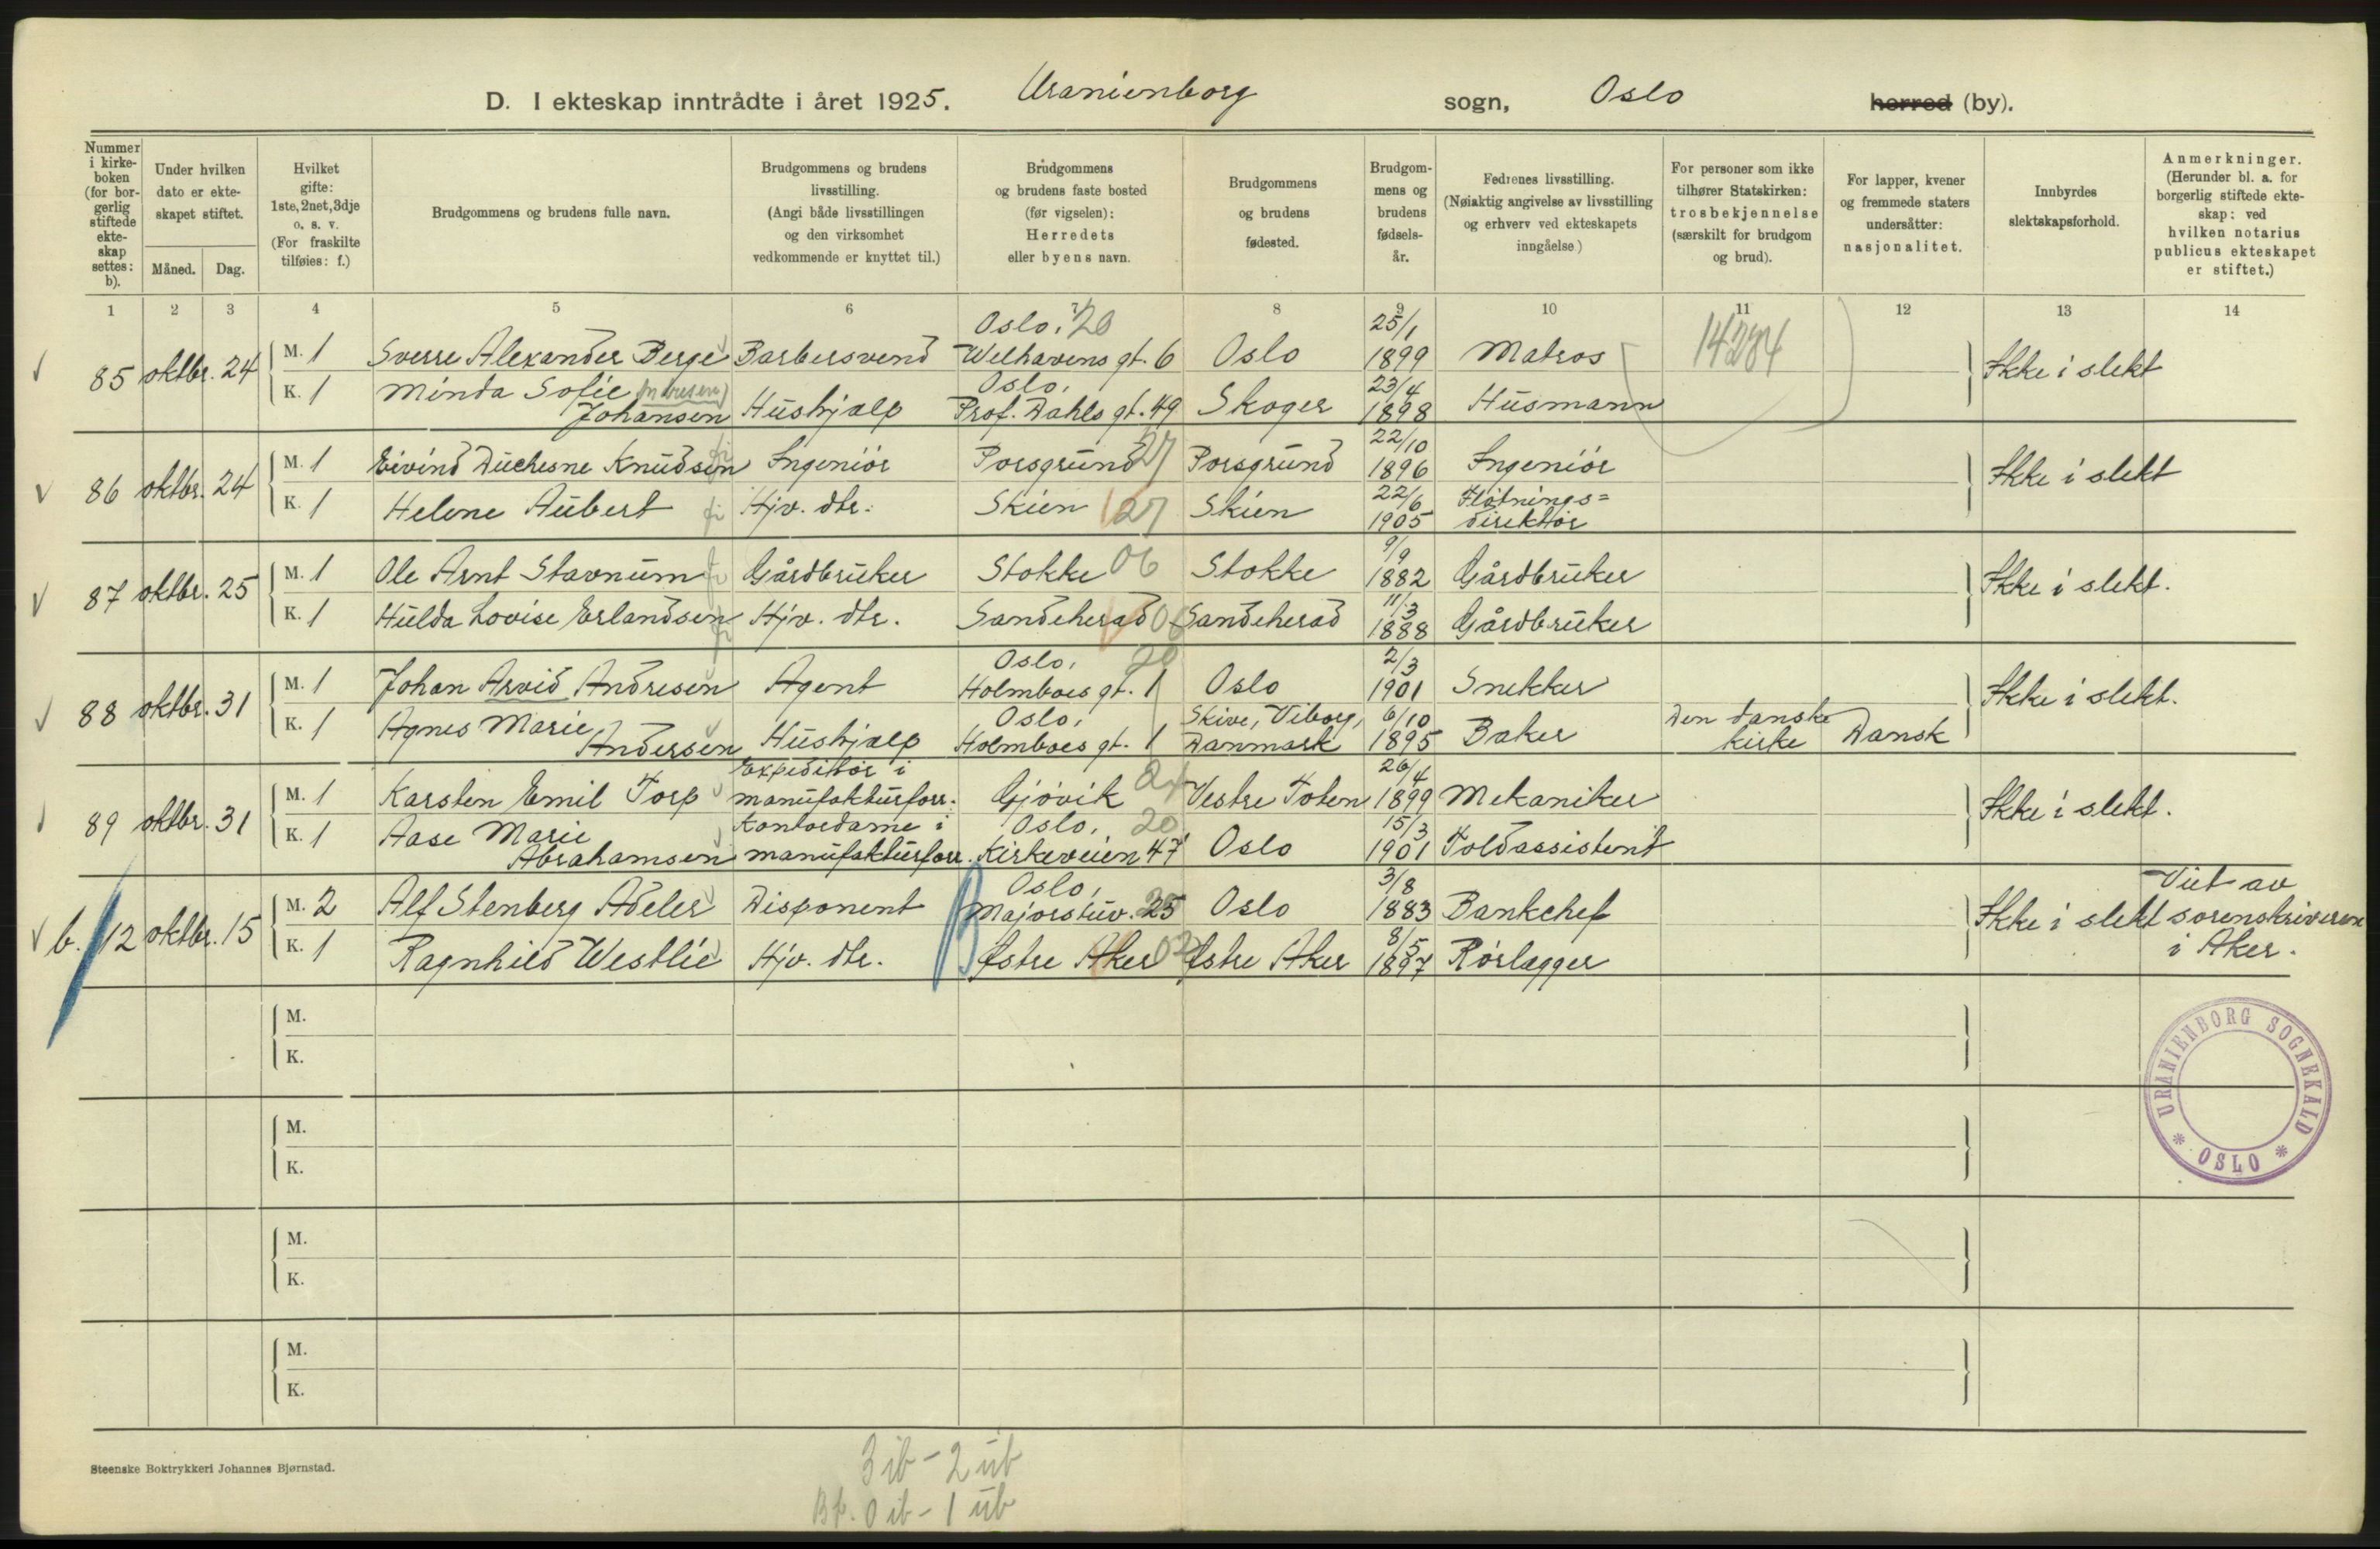 D. I ekteskap inntrådte i året 1925. Uranienborg sogn, Oslo herred (by).
Nummer i kirkeboken (for borgerlig stiftede ekteskap settes: b).
Under hvilken dato er ekteskapet stiftet.
Måned. Dag.
Hvilket gifte: 1ste, 2net, 3dje o. s. v. (For fraskilte tilføies: f.)
Brudgommens og brudens fulle navn.
Brudgommens og brudens livsstilling. (Angi både livsstillingen og den virksomhet vedkommende er knyttet til.)
Brudgommens og brudens faste bosted (før vigselen): Herredets eller byens navn.
Brudgommens og brudens fødested.
Brudgommens og brudens fødselsår.
Fedrenes livsstilling. (Nøiaktig angivelse av livsstilling og erhverv ved ekteskapets inngåelse)
For personer som ikke tilhører Statskirken: trosbekjennelse (særskilt for brudgom og brud).
For lapper, kvener og fremmede staters undersåtter: nasjonalitet.
Innbyrdes slektskapsforhold.
Anmerkninger. (Herunder bl. a. for borgerlig stiftede ekteskap: ved hvilken notarius publicus ekteskapet er stiftet.)
1 2 3 4 5 6 7 8 9 10 11 12 13 14
85 oktbr. 24 M. 1 Sverre Alexander Berge Barbersvend Oslo, 20 Welhavens gt. 6 Oslo 25/1 1899 Matros 14284 Ikke i slekt
K. 1 Minda Sofie Johansen Hushjælp Oslo, Prof. Dahls gt. 49 Skoger 23/4 1898 Husmann
86 oktbr. 24 M. 1 Eivind Duchesne Knudsen Ingeniör Porsgrund 27 Porsgrund 22/10 1896 Ingeniör Ikke i slekt
K. 1 Helene Aubert Hjv. dtr. Skien 27 Skien 22/6 1905 Flötnings=direktör
87 oktbr. 25 M. 1 Ole Arnt Stavnum Gårdbruker Stokke 06 Stokke 9/9 1882 Gårdbruker Ikke i slekt.
K. 1 Hulda Lovise Erlandsen Hjv. dtr. Sandeherad 06 Sandeherad 11/3 1888 Gårdbruker
88 oktbr. 31 M. 1 Johan Arvid Andresen Agent Oslo, 20 Holmboes gt. 1 Oslo 2/3 1901 Snekker Ikke i slekt.
K. 1 Agnes Marie Andersen Hushjælp Oslo, Holmboes gt. 1 Skive, Viborg, Danmark 6/10 1895 Baker Den danske kirke Dansk
89 oktbr. 31 M. 1 Karsten Emil Torp Expeditör i manufakturforr. Gjövik Vestre Toten 26/4 1899 Mekaniker Ikke i slekt.
K. 1 Aase Marie Abrahamsen Kontordame i manufakturforr. Oslo, 20 Kirkeveien 47 Oslo 15/3 1901 Toldassistent
b. 12 oktbr. 15 M. 2 Alf Stenberg Adeler Disponent Oslo, Majorstuv. 25 Oslo 3/8 1883 Bankchef Ikke i slekt Viet av sorenskriveren i Aker.
K. 1 Ragnhild Westlie Hjv. dtr. Østre Aker 02 Østre Aker 8/5 1897 Rörlægger
M.
K.
M.
K.
M.
K.
M.
K.
URANIENBORG SOGNEKALD * OSLO *
Steenske Boktrykkeri Johannes Bjørnstad.
3 ib - 2 ub
Bf. 0 ib - 1 ub